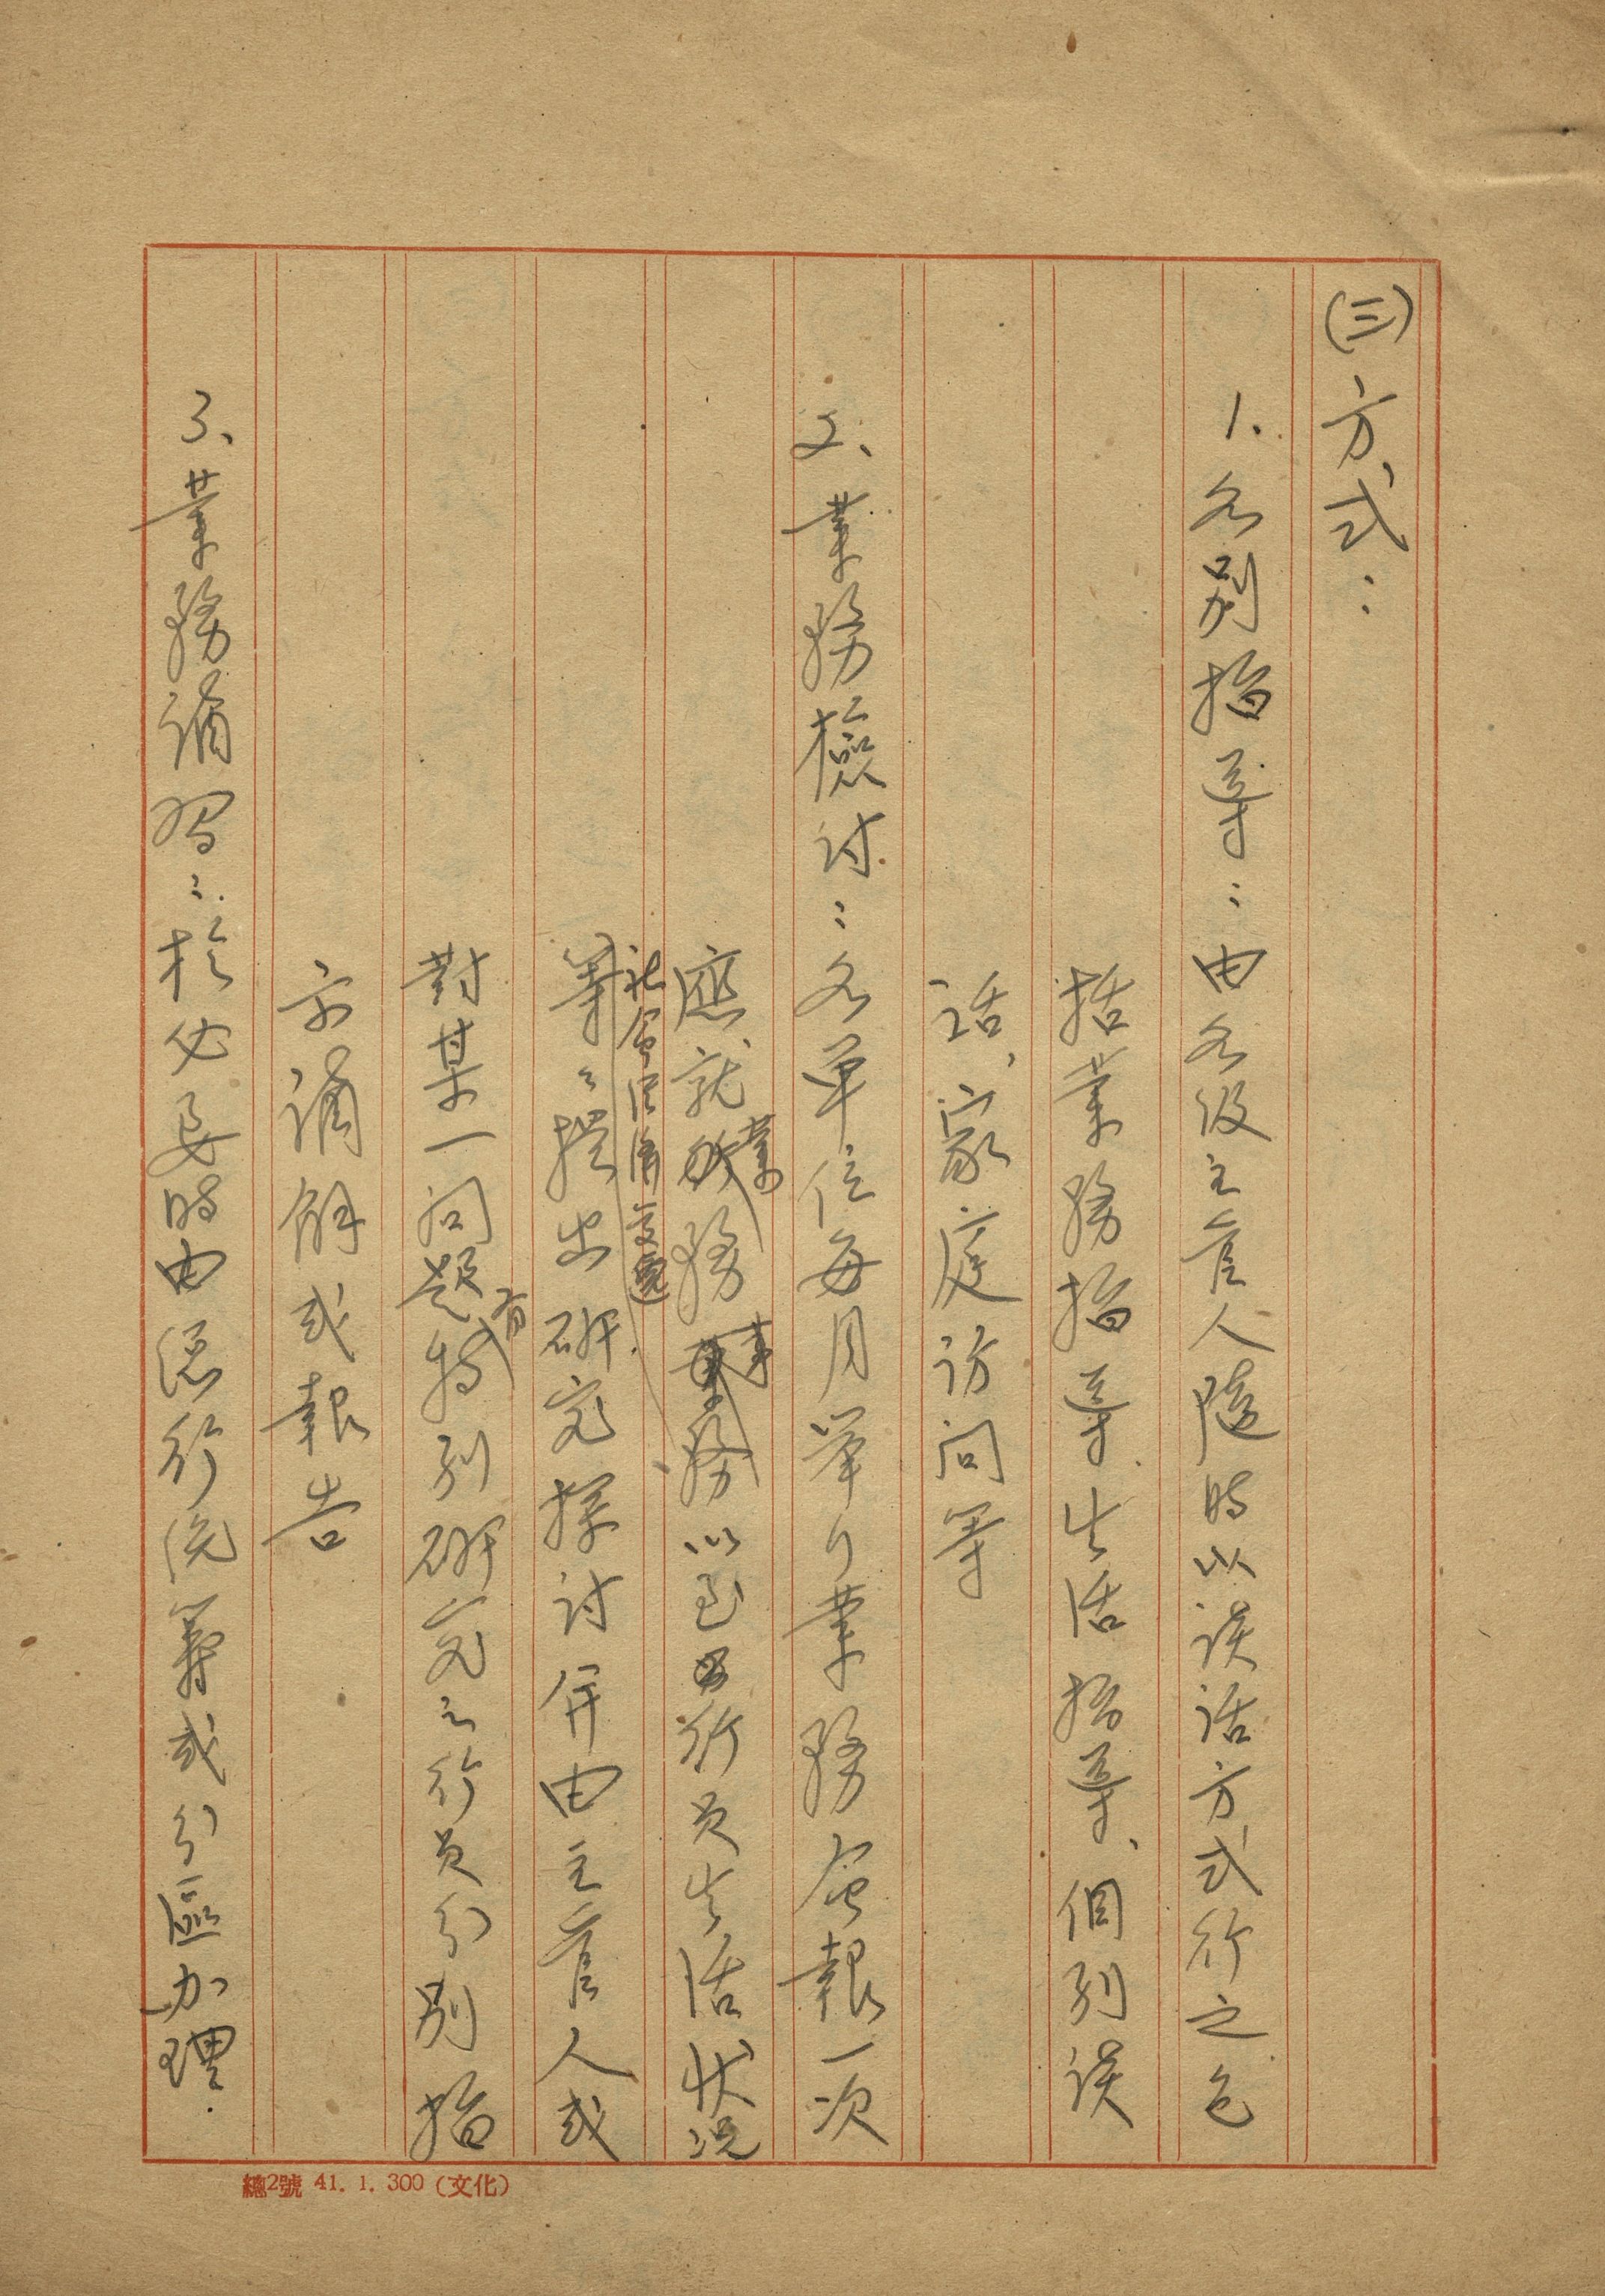 (三)方式：
1. 各別指導：由各級主管人隨時以談話方式行之包
括業務指導、生活指導、個別談
話、家庭訪問等
2、業務檢討：各單位每月舉行業務會報一次
應就業務事務以至行員生活狀況
社會經濟交通
等等提出研究探討併由主管人或
對某一問題有特別研究之行員分別指
示講解或報告
3、業務講習：於必要時由總行統籌或分區辦理.
總2號 41. 1. 300 (文化)